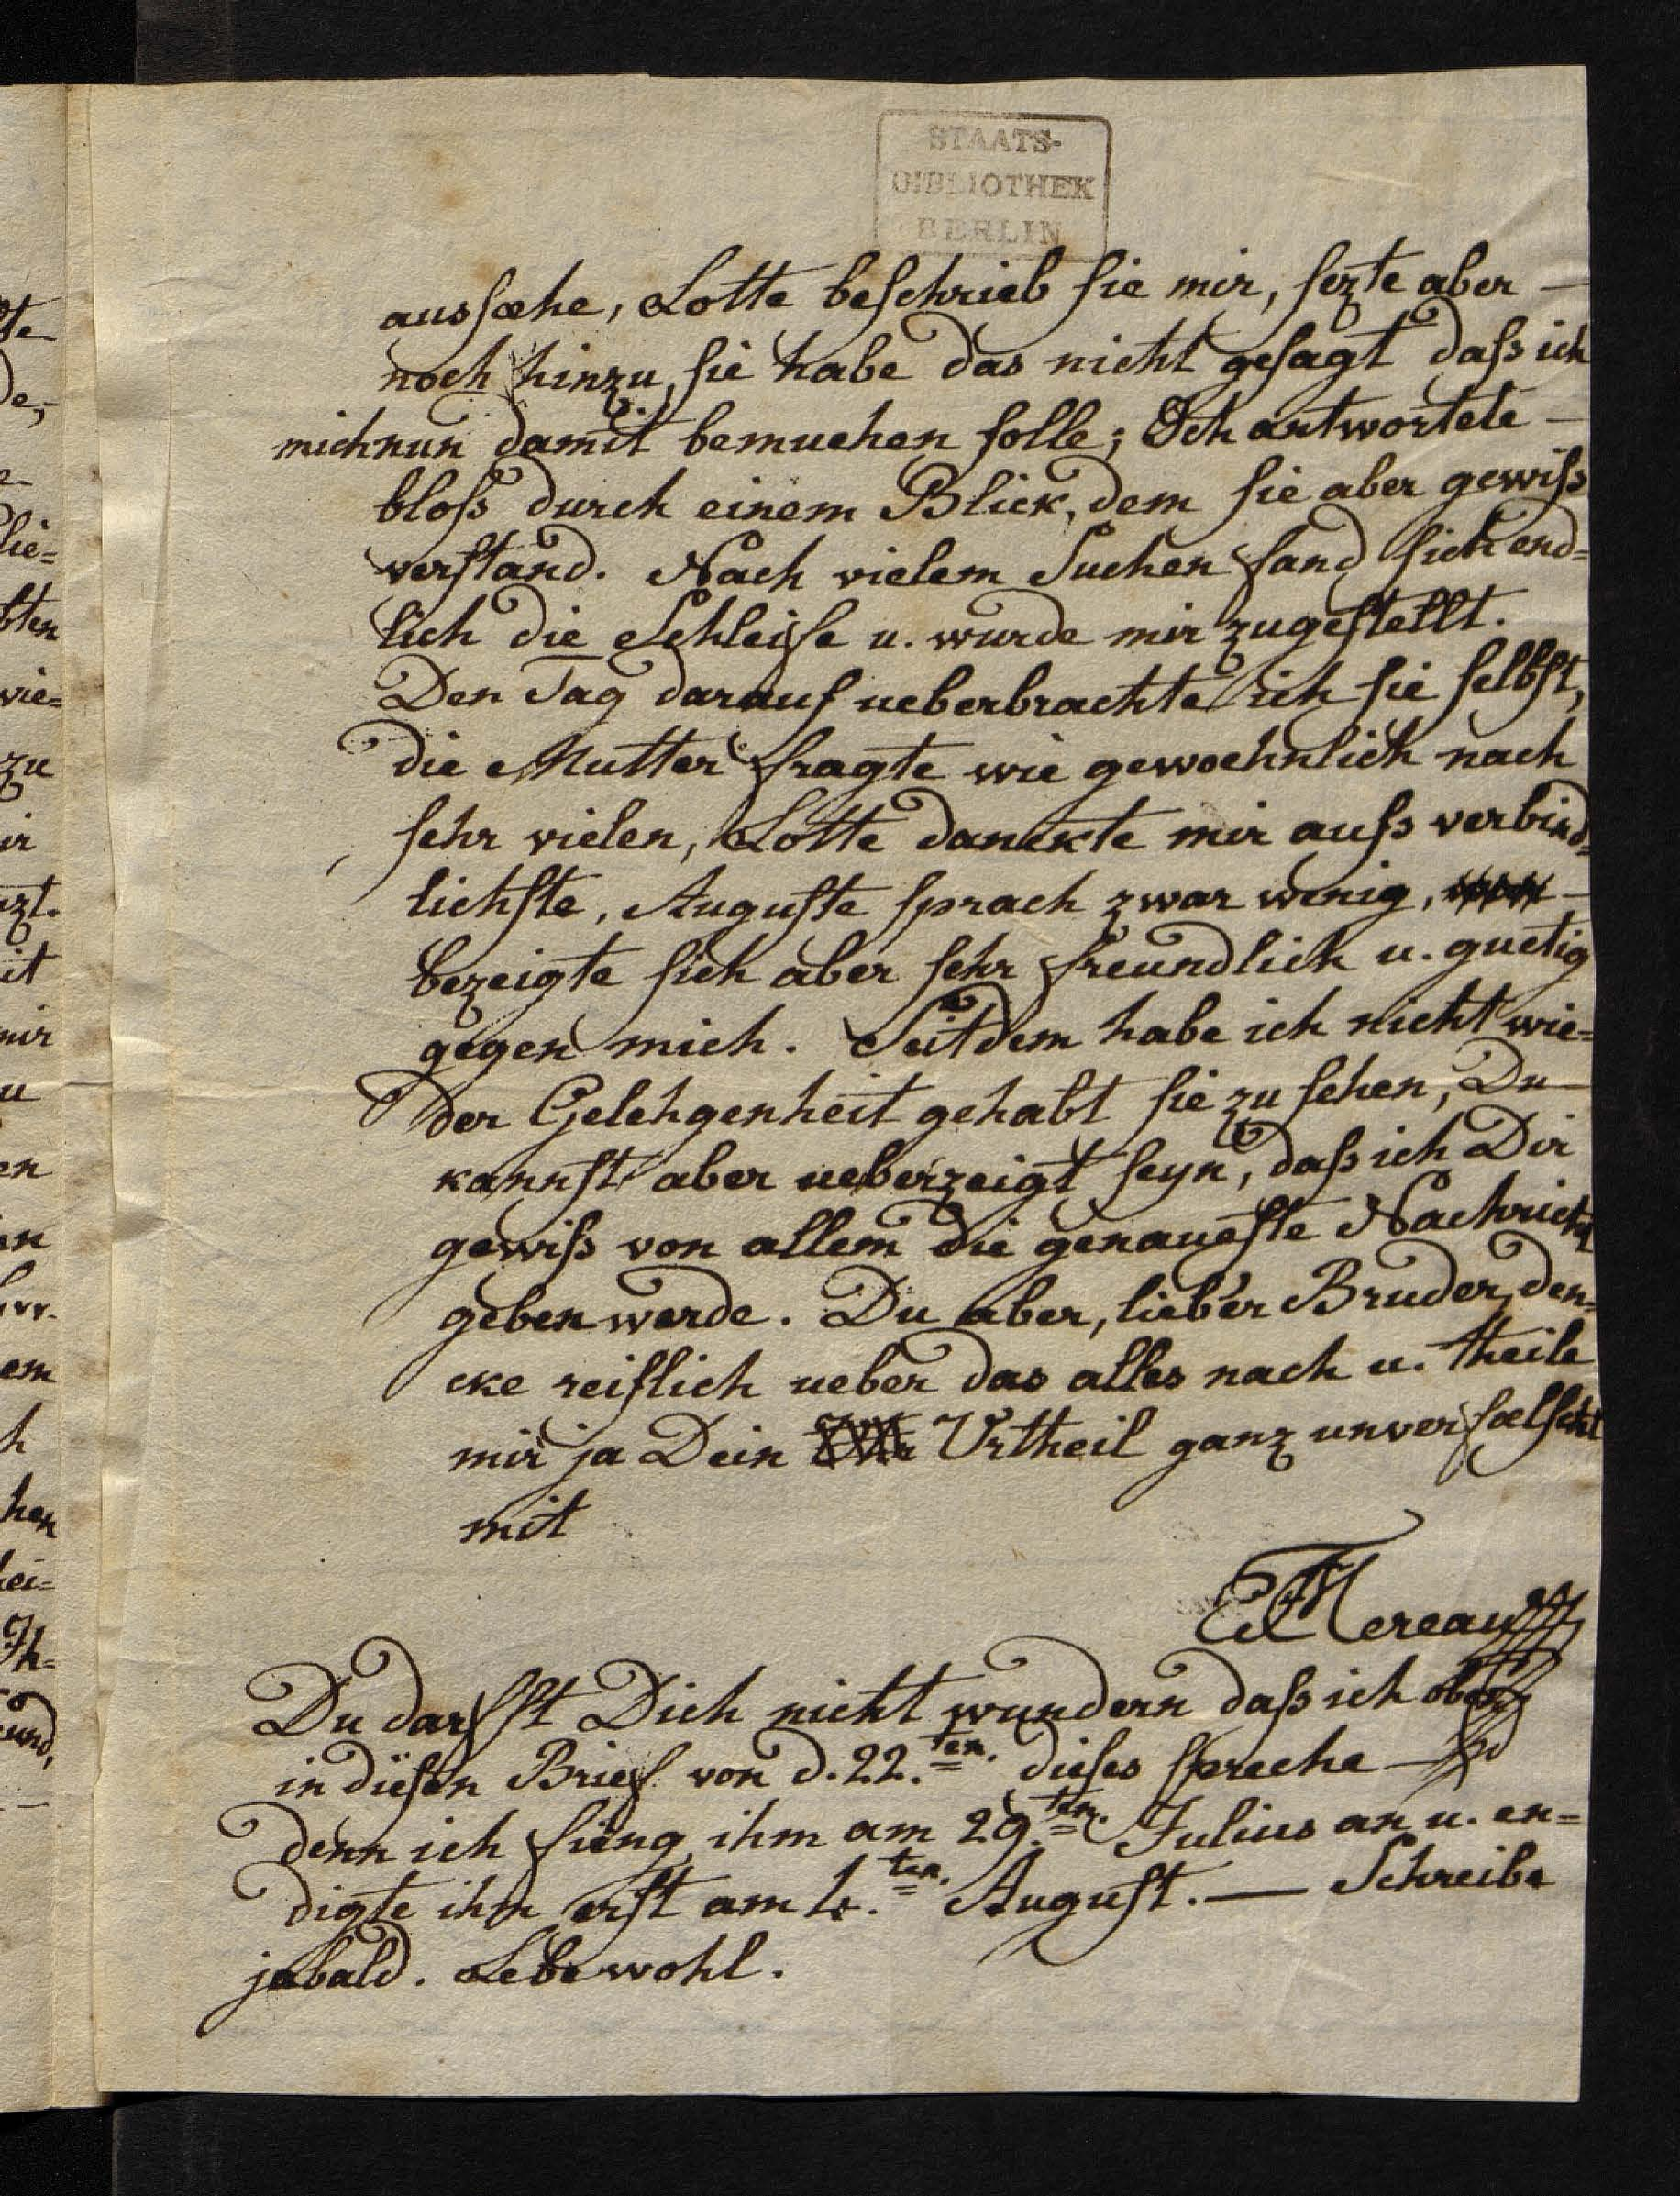 STAATS-
BIBLIOTHEK
BERLIN
aussæhe, Lotte beschrieb sie mir, sezte aber —
noch hinzu, sie habe das nicht gesagt dass ich
mich nun damit bemuehen solle; Ich antwortete —
bloss durch einem Blick, dem sie aber gewiss
verstand. Nach vielem Suchen fand sich end=
lich die Schleife u. wurde mir zugestellt.
Den Tag darauf ueberbrachte ich sie selbst,
die Mutter fragte wie gewoehnlich nach
sehr vielen, Lotte danckte mir aufs verbind=
lichste, Auguste sprach zwar wenig, —
bezeigte sich aber sehr freundlich u. guetig
gegen mich. Seitdem habe ich nicht wie=
der Gelehgenheit gehabt sie zu sehen, Du —
kannst aber ueberzeigt seyn, dass ich Dir
gewiss von allem die genaueste Nachricht
geben werde. Du aber, lieber Bruder, den=
cke reiflich ueber das alles nach u. theile
mir ja Dein Urtheil ganz unverfælscht
mit
Mereau
Du darfst Dich nicht wundern dass ich oben
in diesen Brief von d. 22.ten. dieses spreche —
denn ich fieng ihm am 29.ten. Julius an u. en=
digte ihn erst am 4.ten. August. — Schreibe
ja bald. Lebe wohl.
te
de,
e
lie=
bten
wie=
zu
ir
zt.
it
mir
u
en
en
em
h
hen
lei=
Ih=
und,